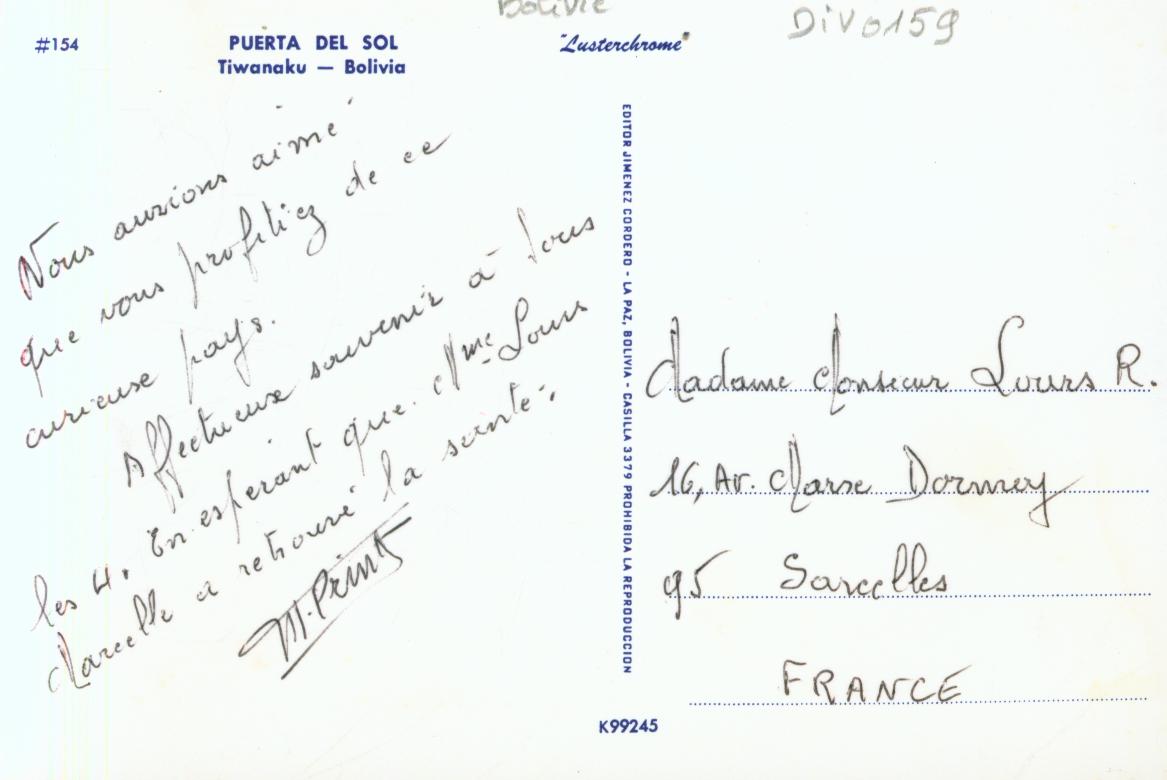 Bolivie
Div0159
#154
PUERTA DEL SOL
Tiwanaku — Bolivia
"Lusterchrome"
Nous aurions aimé
que vous profitiez de ce
curieuse pays.
Affectueux souvenir à tous
les 4. En esperant que Mme Louis
Marcelle a retrouvé la santé.
M. Print
EDITOR JIMENEZ CORDERO - LA PAZ, BOLIVIA - CASILLA 3379 PROHIBIDA LA REPRODUCCION
Madame Monsieur Louis R.
16, Av. Marx Dormoy
95 Sarcelles
FRANCE
K99245